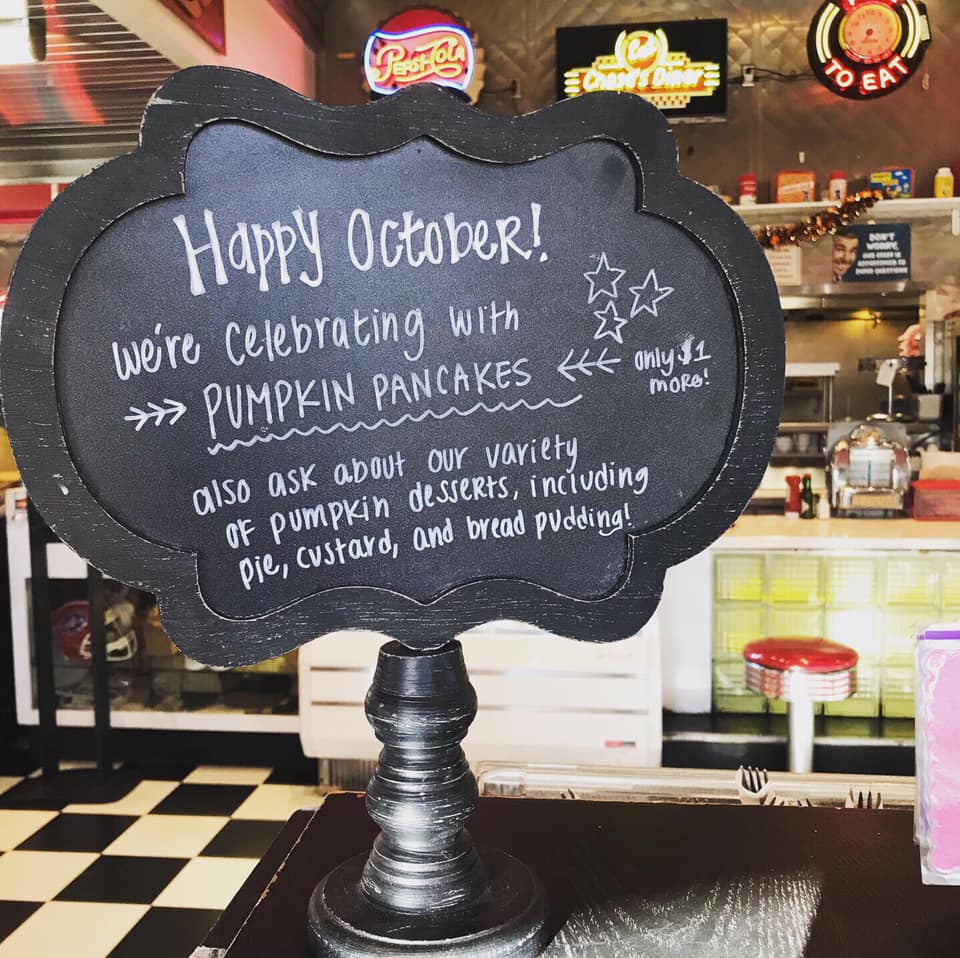 Pepsi-Cola
Chase's Diner
TO EAT
DON'T
WORRY,
Happy October!
we're celebrating with
PUMPKIN PANCAKES
only $1
more!
also ask about our variety
of pumpkin desserts, including
pie, custard, and bread pudding!